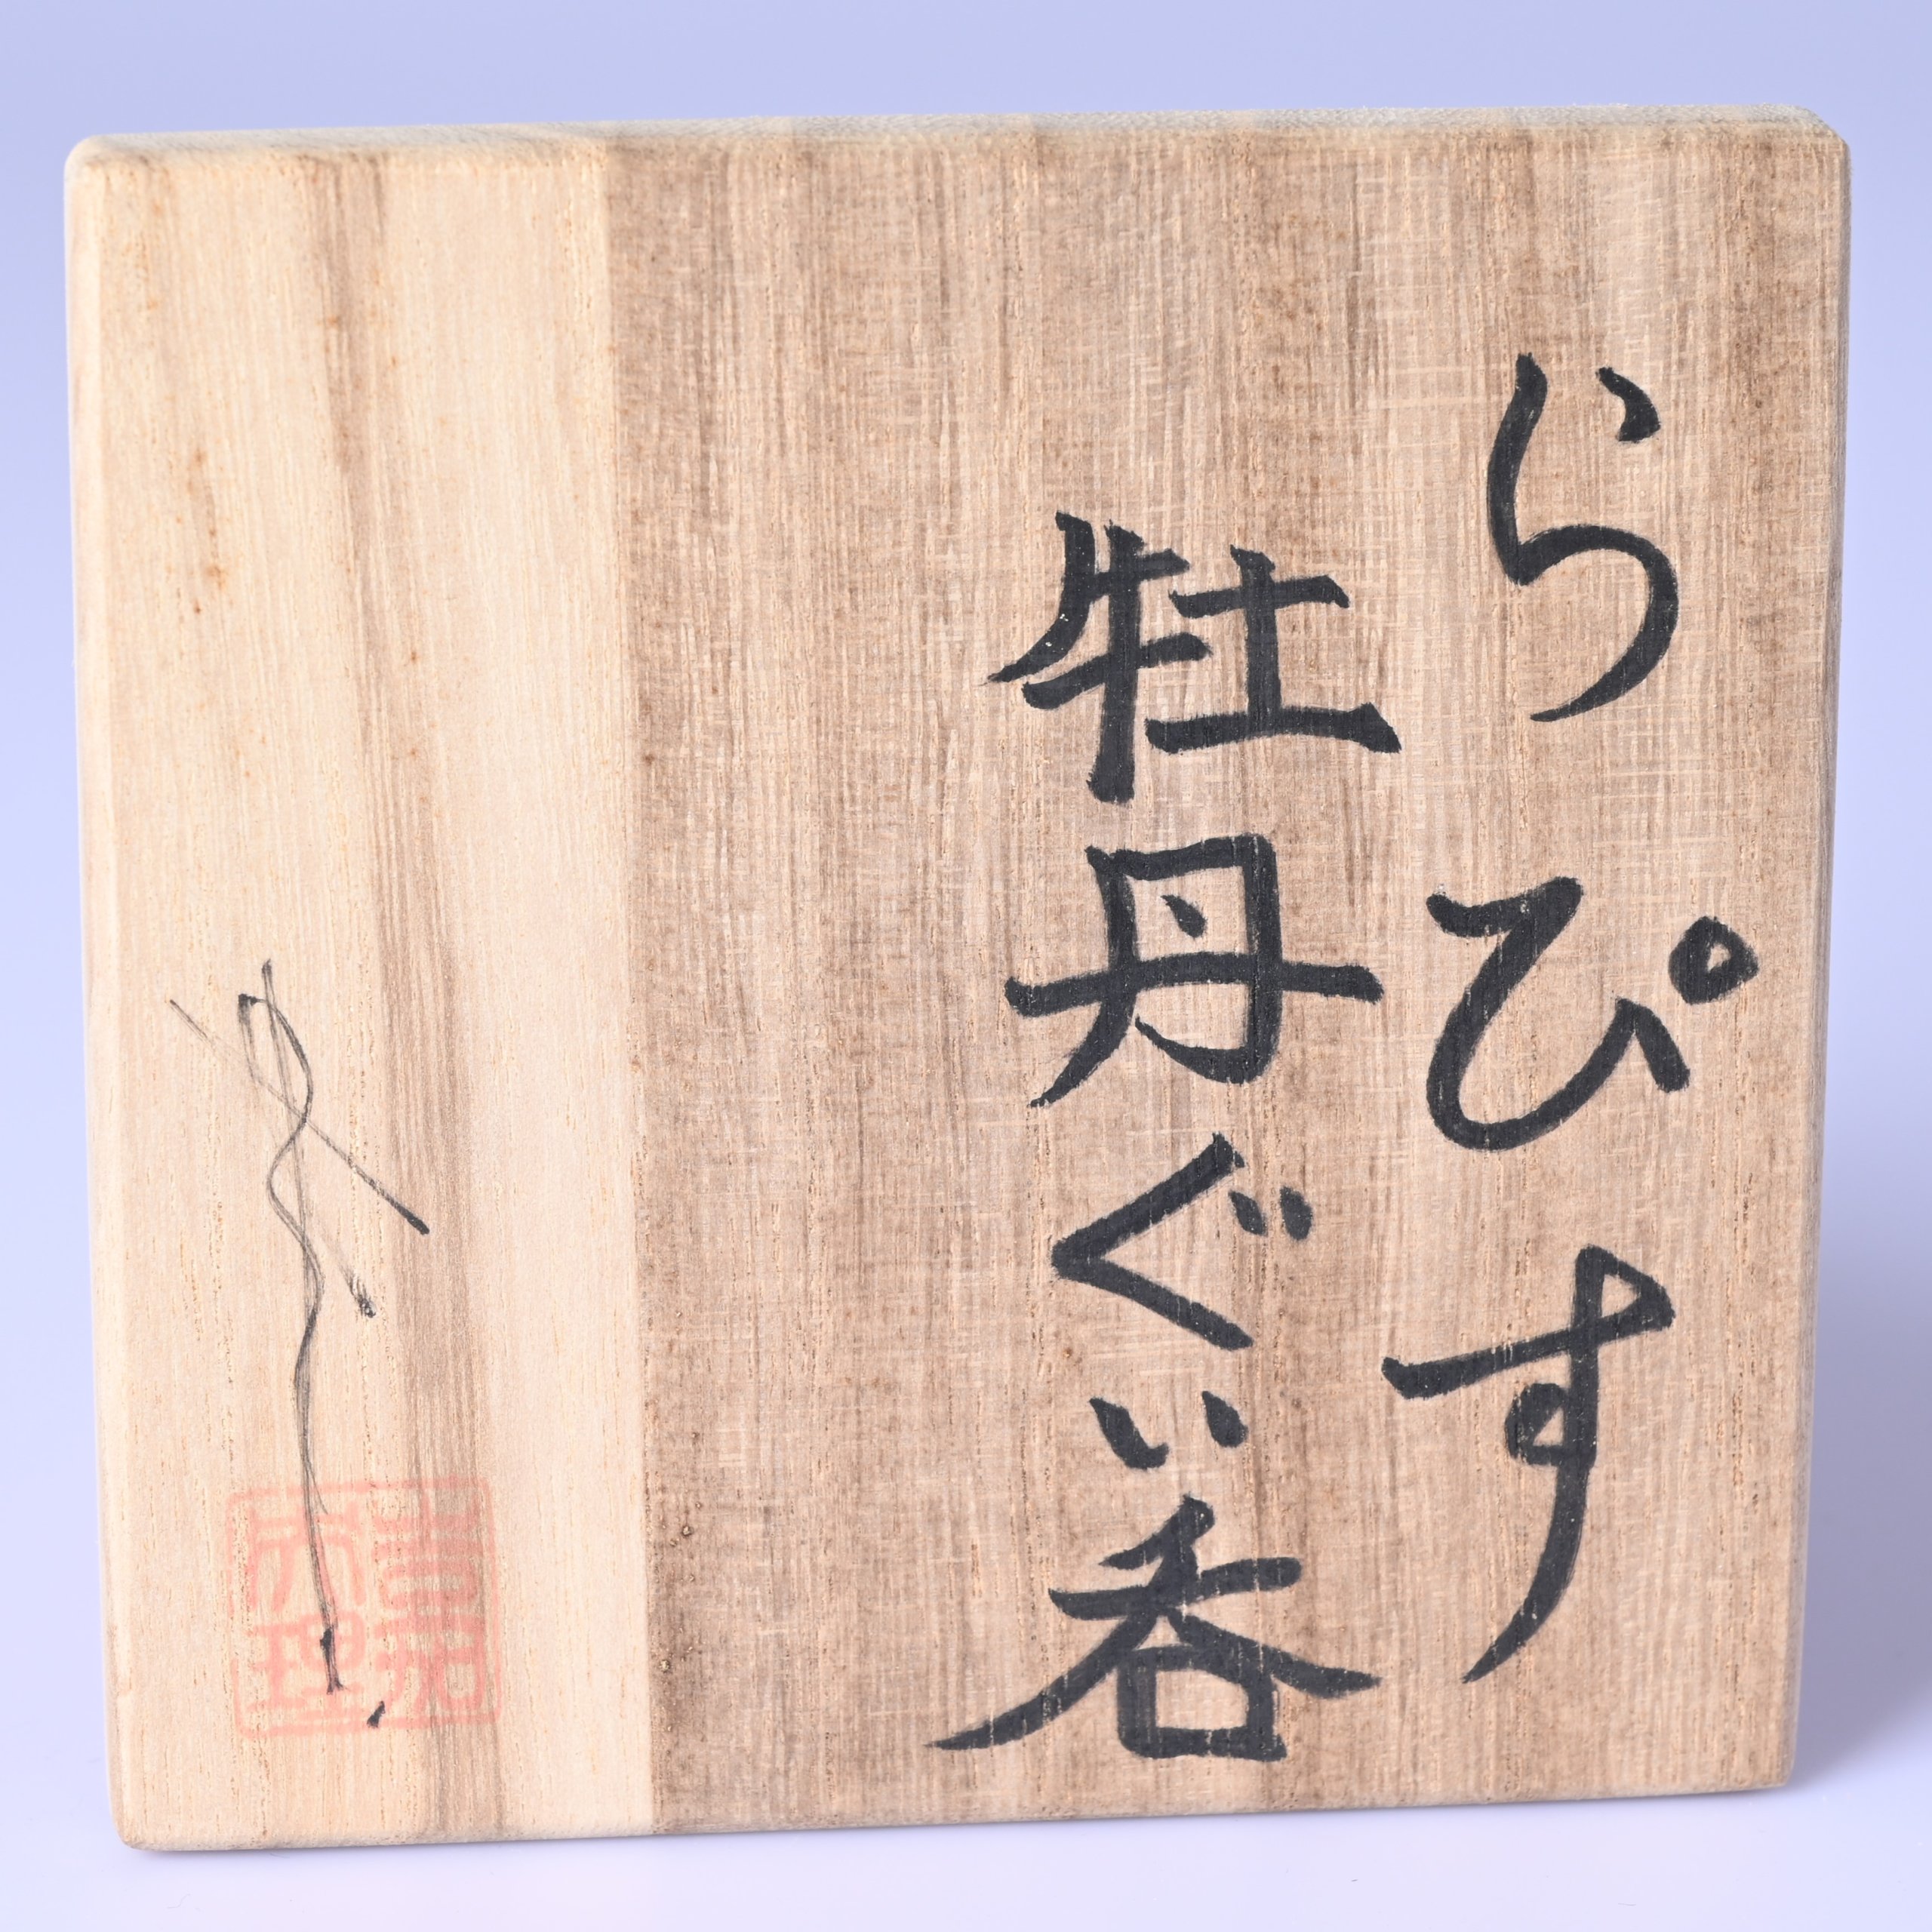 らぴす
牡丹ぐい呑